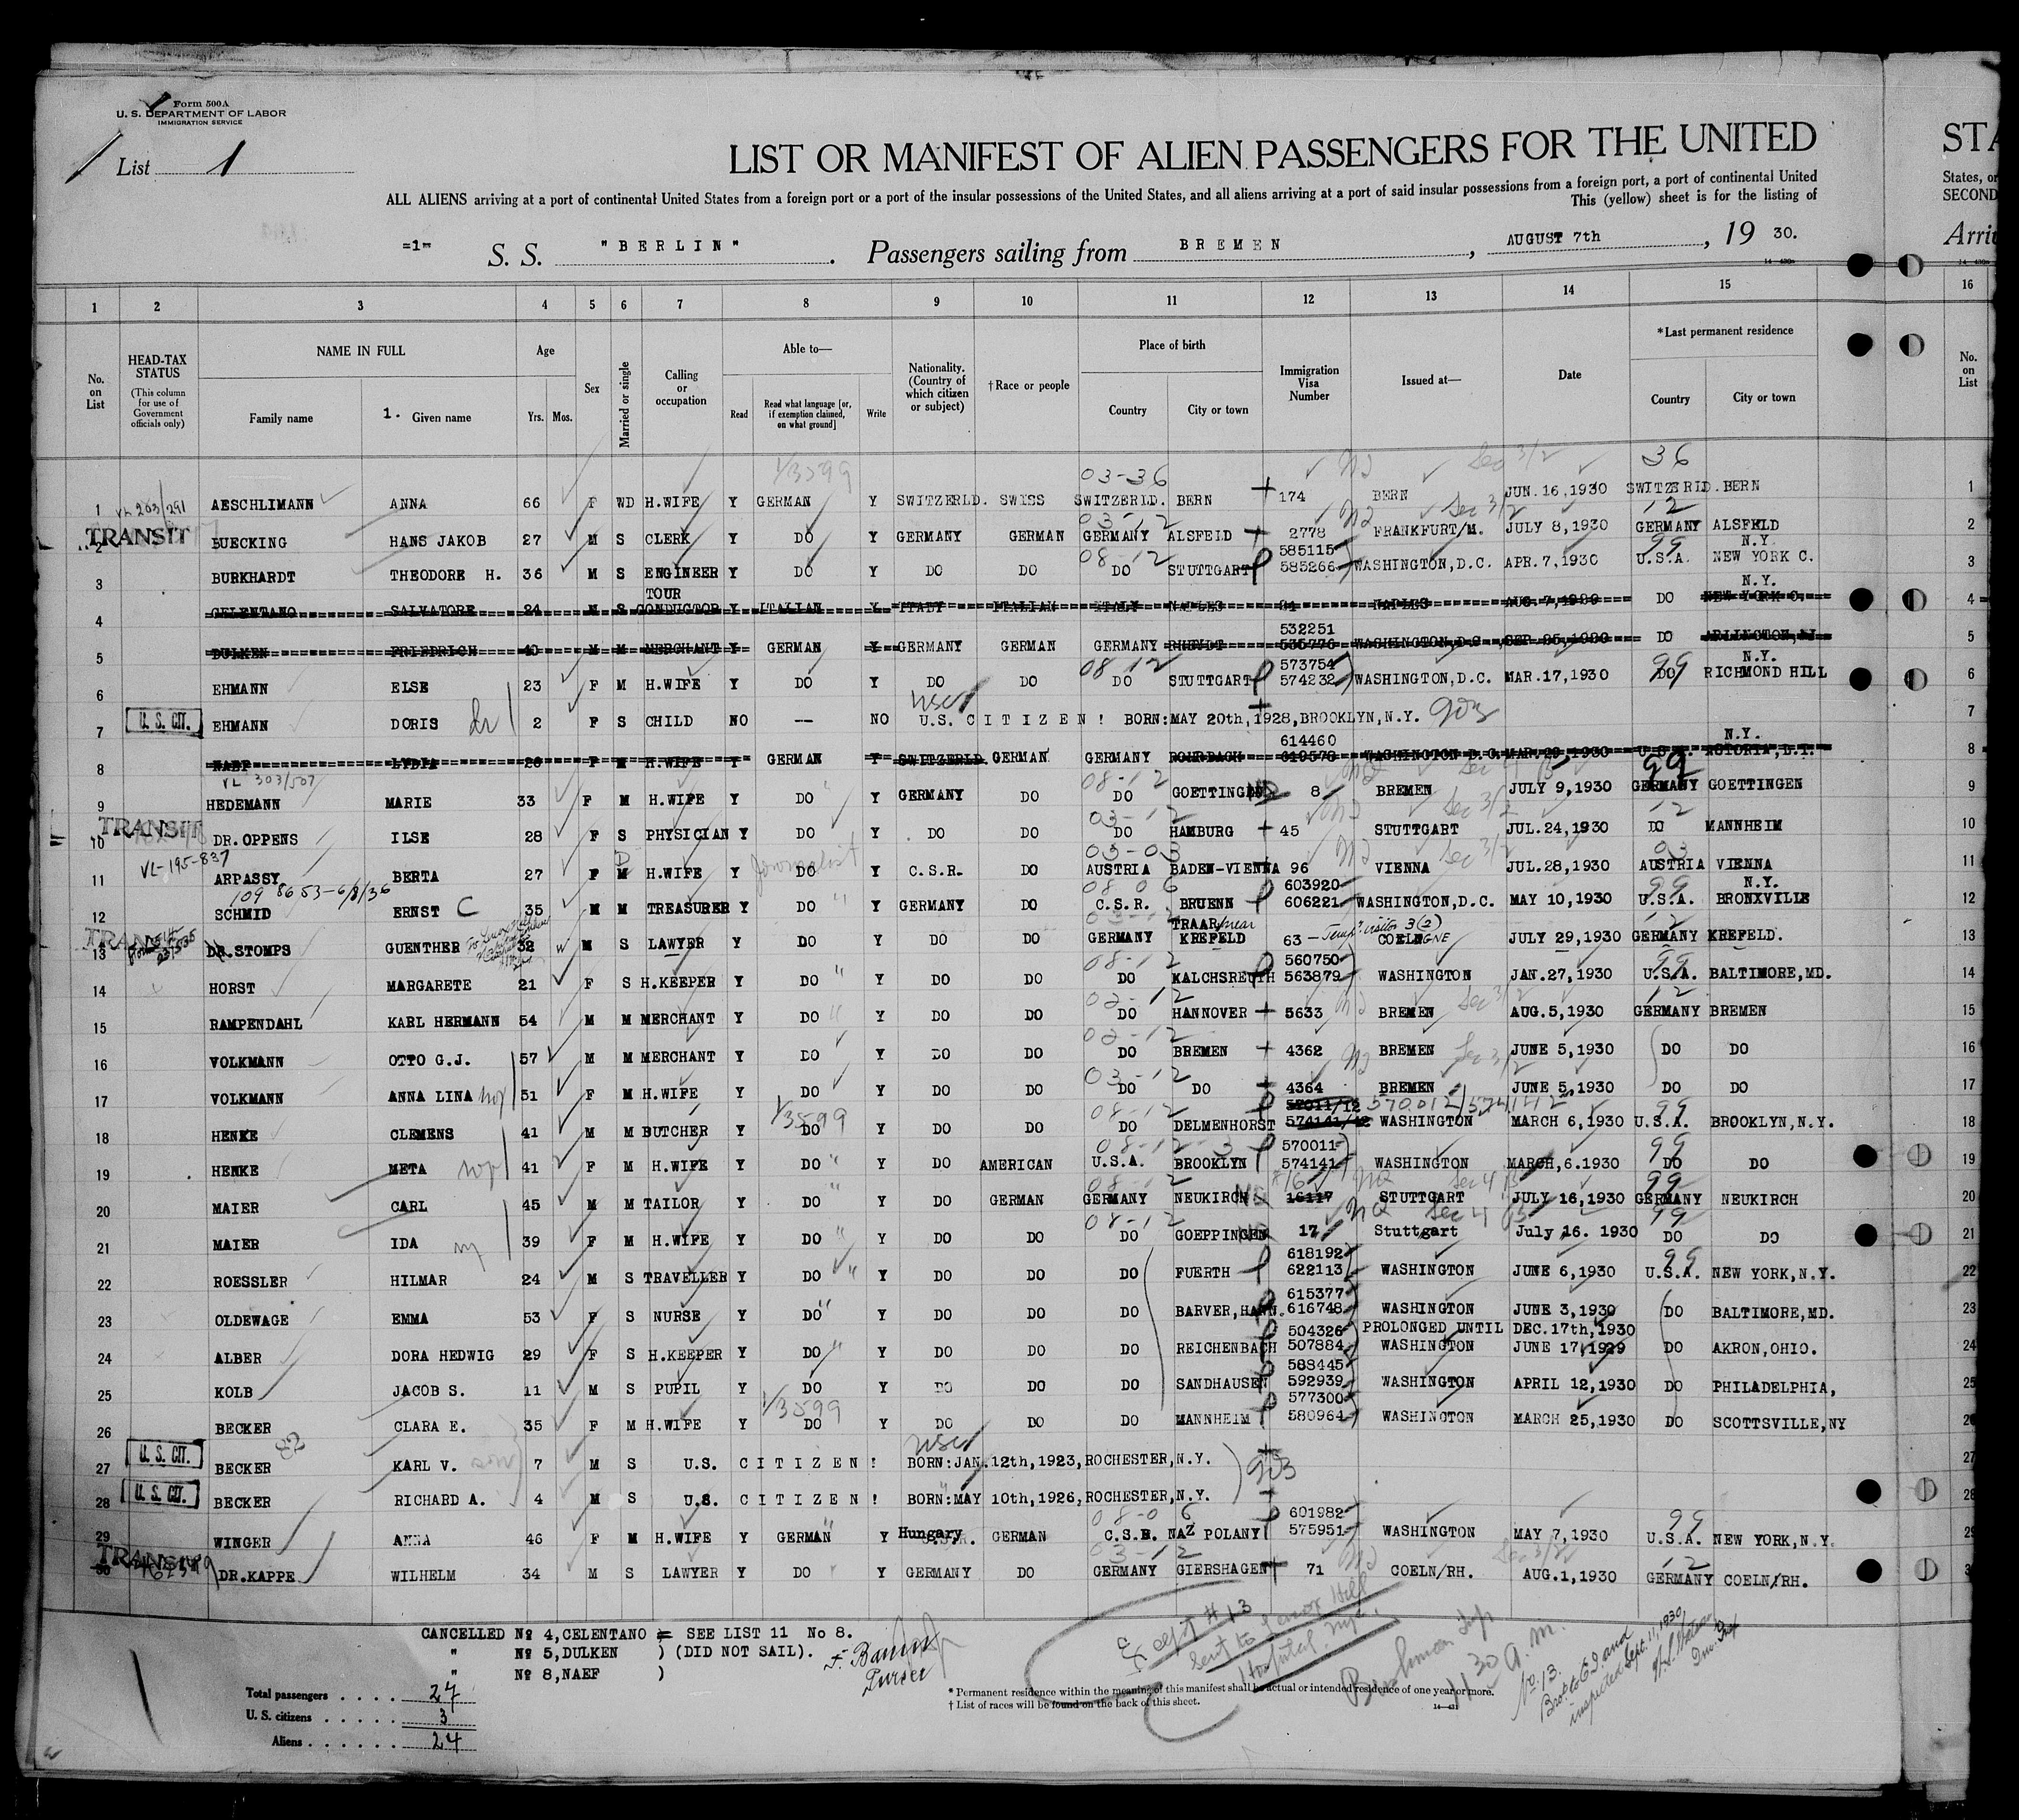 Form 500A
U. S. DEPARTMENT OF LABOR
IMMIGRATION SERVICE
List 1
LIST OR MANIFEST OF ALIEN PASSENGERS FOR THE UNITED
STA
ALL ALIENS arriving at a port of continental United States from a foreign port or a port of the insular possessions of the United States, and all aliens arriving at a port of said insular possessions from a foreign port, a port of continental United
States, or
This (yellow) sheet is for the listing of
SECOND
=1= S. S. "BERLIN". Passengers sailing from BREMEN, AUGUST 7th, 19 30.
Arri
1 2 3 4 5 6 7 8 9 10 11 12 13 14 15 16
No. on List
HEAD-TAX STATUS (This column for use of Government officials only)
NAME IN FULL
Family name 1. Given name
Age
Yrs. Mos.
Sex
Married or single
Calling or occupation
Able to—
Read
Read what language [or, if exemption claimed, on what ground]
Write
Nationality. (Country of which citizen or subject)
†Race or people
Place of birth
Country City or town
Immigration Visa Number
Issued at—
Date
*Last permanent residence
Country City or town
No. on List
1/3599 03-36 Sec 3/2 36
1 VL 203/291 AESCHLIMANN ANNA 66 F WD H.WIFE Y GERMAN Y SWITZERLD. SWISS SWITZERLD. BERN 174 BERN JUN.16,1930 SWITZERLD. BERN 1
03-12 Sec 3/2 12
TRANSIT
2 BUECKING HANS JAKOB 27 M S CLERK Y DO Y GERMANY GERMAN GERMANY ALSFELD 2778 FRANKFURT/M. JULY 8,1930 GERMANY ALSFELD 2
08-12 585115 99 N.Y.
3 BURKHARDT THEODORE H. 36 M S ENGINEER Y DO Y DO DO DO STUTTGART 585266 WASHINGTON,D.C. APR.7,1930 U.S.A. NEW YORK C. 3
TOUR N.Y.
4 CELENTANO SALVATORE 24 M S CONDUCTOR Y ITALIAN Y ITALY ITALIAN ITALY NAPLES NAPLES DO NEW YORK C. 4
532251
5 DULKEN FRIEDRICH 40 M M MERCHANT Y GERMAN Y GERMANY GERMAN GERMANY RHEYDT 535776 WASHINGTON,D.C. DO ARLINGTON,NJ 5
08 12 573754 99 N.Y.
6 EHMANN ELSE 23 F M H.WIFE Y DO Y DO DO DO STUTTGART 574232 WASHINGTON,D.C. MAR.17,1930 DO RICHMOND HILL 6
U. S. CIT. USC
7 EHMANN DORIS 2 F S CHILD NO -- NO U.S. CITIZEN! BORN:MAY 20th,1928,BROOKLYN,N.Y. 903 7
614460 N.Y.
8 NAEF LYDIA F M H.WIFE Y GERMAN Y SWITZERLD. GERMAN GERMANY ROHRBACH WASHINGTON D.C. U.S.A. ASTORIA,L.I. 8
VL 303/507 08-12 99
9 HEDEMANN MARIE 33 F M H.WIFE Y DO Y GERMANY DO DO GOETTINGEN 8 BREMEN JULY 9,1930 GERMANY GOETTINGEN 9
TRANSIT 03-12 Sec 3/2 12
10 DR.OPPENS ILSE 28 F S PHYSICIAN Y DO Y DO DO DO HAMBURG 45 STUTTGART JUL.24,1930 DO MANNHEIM 10
VL-195-837 D Journalist 03-03 Sec 3/2 03
11 ARPASSY BERTA 27 F M H.WIFE Y DO Y C.S.R. DO AUSTRIA BADEN-VIENNA 96 VIENNA JUL.28,1930 AUSTRIA VIENNA 11
109 8653-6/8/36 08 06 603920 99 N.Y.
12 SCHMID ERNST C 35 M M TREASURER Y DO Y GERMANY DO C.S.R. BRUENN 606221 WASHINGTON,D.C. MAY 10,1930 U.S.A. BRONXVILLE 12
TRANSIT 03-12 TRAAR/near Temp visitor 3(2) 12
13 DR.STOMPS GUENTHER 32 M S LAWYER Y DO Y DO DO GERMANY KREFELD 63 COELNGNE JULY 29,1930 GERMANY KREFELD. 13
08-12 560750 99
14 HORST MARGARETE 21 F S H.KEEPER Y DO Y DO DO DO KALCHSREUTH 563879 WASHINGTON JAN.27,1930 U.S.A. BALTIMORE,MD. 14
02-12 Sec 3/2 12
15 RAMPENDAHL KARL HERMANN 54 M M MERCHANT Y DO Y DO DO DO HANNOVER 5633 BREMEN AUG.5,1930 GERMANY BREMEN 15
02-12
16 VOLKMANN OTTO G.J. 57 M M MERCHANT Y DO Y DO DO DO BREMEN 4362 BREMEN JUNE 5,1930 DO DO 16
03-12 Sec 3/2
17 VOLKMANN ANNA LINA 51 F M H.WIFE Y DO Y DO DO DO DO 4364 BREMEN JUNE 5,1930 DO DO 17
1/3599 08-12 570012/574142 99
18 HENKE CLEMENS 41 M M BUTCHER Y DO Y DO DO DO DELMENHORST 574141/42 WASHINGTON MARCH 6,1930 U.S.A. BROOKLYN,N.Y. 18
08-12-3 570011 99
19 HENKE META 41 F M H.WIFE Y DO Y DO AMERICAN U.S.A. BROOKLYN 574141 WASHINGTON MARCH,6.1930 DO DO 19
08-12 Sec 4 99
20 MAIER CARL 45 M M TAILOR Y DO Y DO GERMAN GERMANY NEUKIRCH 16117 STUTTGART JULY 16,1930 GERMANY NEUKIRCH 20
08-12 Sec 4 99
21 MAIER IDA 39 F M H.WIFE Y DO Y DO DO DO GOEPPINGEN 17 Stuttgart July 16. 1930 DO DO 21
618192 99
22 ROESSLER HILMAR 24 M S TRAVELLER Y DO Y DO DO DO FUERTH 622113 WASHINGTON JUNE 6,1930 U.S.A. NEW YORK,N.Y. 22
615377
23 OLDEWAGE EMMA 53 F S NURSE Y DO Y DO DO DO BARVER,HANN. 616748 WASHINGTON JUNE 3,1930 DO BALTIMORE,MD. 23
504326 PROLONGED UNTIL DEC.17th,1930
24 ALBER DORA HEDWIG 29 F S H.KEEPER Y DO Y DO DO DO REICHENBACH 507884 WASHINGTON JUNE 17,1929 DO AKRON,OHIO. 24
588445
25 KOLB JACOB S. 11 M S PUPIL Y DO Y DO DO DO SANDHAUSEN 592939 WASHINGTON APRIL 12,1930 DO PHILADELPHIA, 25
1/3599 577300
26 BECKER CLARA E. 35 F M H.WIFE Y DO Y DO DO DO MANNHEIM 580964 WASHINGTON MARCH 25,1930 DO SCOTTSVILLE,NY 26
U. S. CIT. 82 USC
27 BECKER KARL V. son 7 M S U.S. CITIZEN! BORN:JAN.12th,1923,ROCHESTER,N.Y. 903 27
U. S. CIT.
28 BECKER RICHARD A. 4 M S U.S. CITIZEN! BORN:MAY 10th,1926,ROCHESTER,N.Y. 28
08-06 601982 99
29 WINGER ANNA 46 F M H.WIFE Y GERMAN Y Hungary GERMAN C.S.R. NAZ POLANY 575951 WASHINGTON MAY 7,1930 U.S.A. NEW YORK,N.Y. 29
TRANSIT 03-12 Sec 3/2 12
30 DR.KAPPE WILHELM 34 M S LAWYER Y DO Y GERMANY DO GERMANY GIERSHAGEN 71 COELN/RH. AUG.1,1930 GERMANY COELN/RH. 3
CANCELLED № 4,CELENTANO = SEE LIST 11 No 8.
" № 5,DULKEN ) (DID NOT SAIL).
" № 8,NAEF )
Purser
Total passengers 27
U. S. citizens 3
Aliens 24
#13
sent to Lenox Hill
Hospital, N.Y.
11 30 A.M.
No. 13.
Brot to E.I. and
inspected Sept. 11, 1930
* Permanent residence within the meaning of this manifest shall be actual or intended residence of one year or more.
† List of races will be found on the back of this sheet.